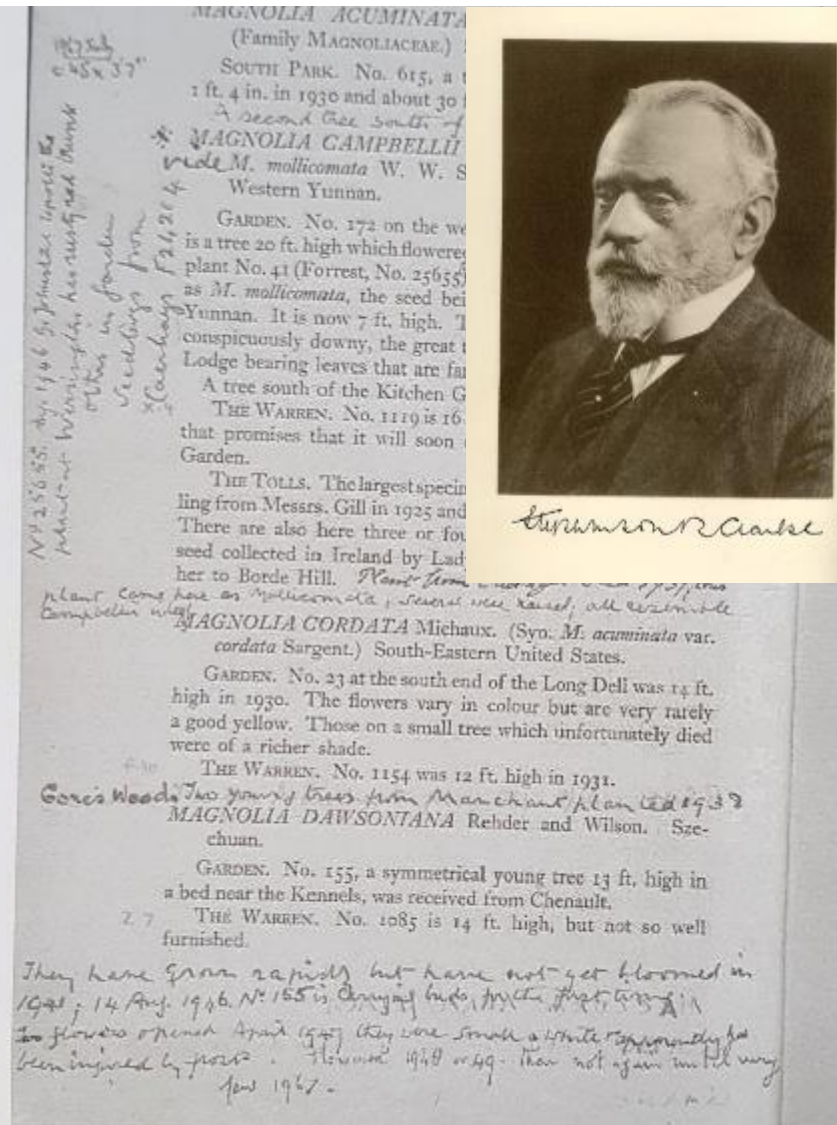 MAGNOLIA ACUMINATA
(Family MAGNOLIACEAE.)
SOUTH PARK. No. 615, a t
1 ft. 4 in. in 1930 and about 30 f
A second tree south of
MAGNOLIA CAMPBELLII
vide M. mollicomata W. W. S
Western Yunnan.
GARDEN. No. 172 on the we
is a tree 20 ft. high which flowered
plant No. 41 (Forrest, No. 25655)
as M. mollicomata, the seed bei
Yunnan. It is now 7 ft. high. T
conspicuously downy, the great t
Lodge bearing leaves that are fa
A tree south of the Kitchen G
THE WARREN. No. 1119 is 16
that promises that it will soon
Garden.
THE TOLLS. The largest specim
ling from Messrs. Gill in 1925 and
There are also here three or fou
seed collected in Ireland by Lad
her to Borde Hill. Plant from
plant came here as mollicomata, several were raised, all resemble
Campbellii
MAGNOLIA CORDATA Michaux. (Syn. M. acuminata var.
cordata Sargent.) South-Eastern United States.
GARDEN. No. 23 at the south end of the Long Deli was 14 ft.
high in 1930. The flowers vary in colour but are very rarely
a good yellow. Those on a small tree which unfortunately died
were of a richer shade.
THE WARREN. No. 1154 was 12 ft. high in 1931.
Gore's Wood. Two young trees from Marchant planted 1938
MAGNOLIA DAWSONIANA Rehder and Wilson. Sze-
chuan.
GARDEN. No. 155, a symmetrical young tree 13 ft. high in
a bed near the Kennels, was received from Chenault.
27
THE WARREN. No. 1085 is 14 ft. high, but not so well
furnished.
They have grown rapidly but have not yet bloomed in
1941; 14 Aug. 1946. No 155 is carrying buds, for the first time
Two flowers opened April 1947 they were small & white apparently had
been injured by frost. Flowered 1948 or 49. Then not again until very
few 1967.
No 25655.
other in garden
seedlings from
Caerhays
Stephenson R Clarke